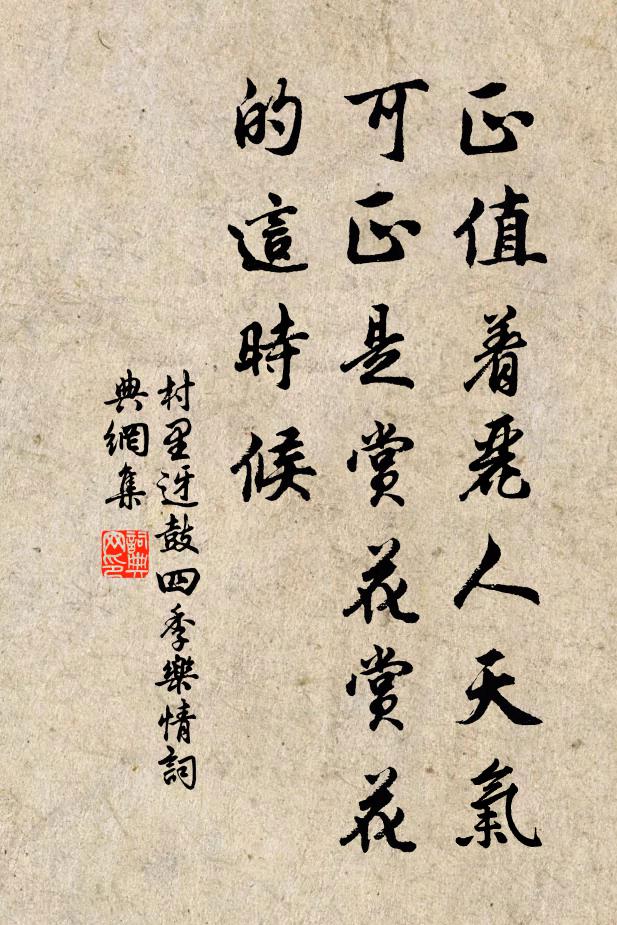 正值着麗人天氣
可正是賞花賞花
的這時候
村里迓鼓四季樂情詞
典網集
詞典网印